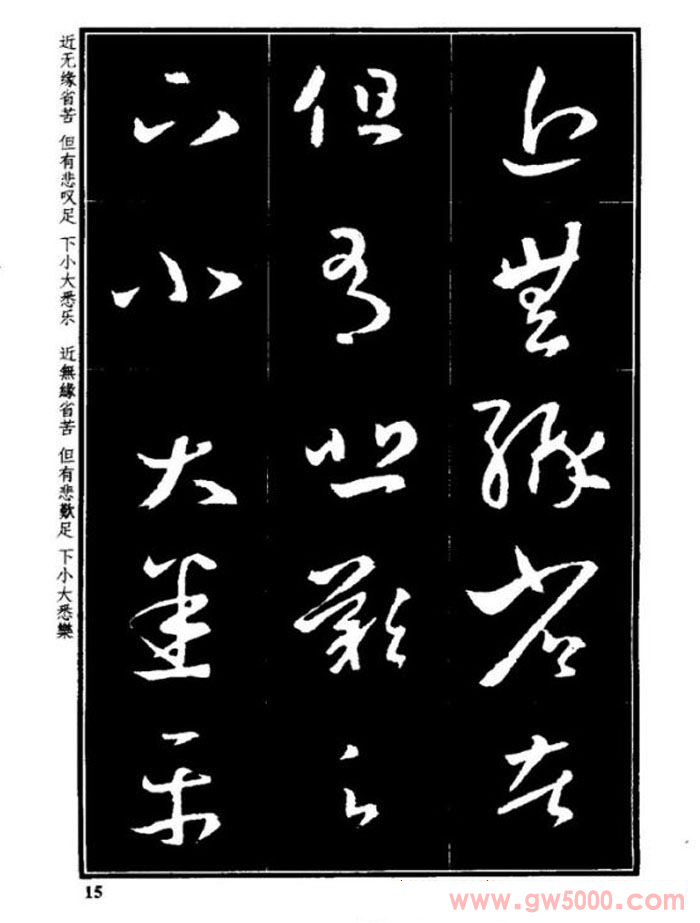 近無緣省苦
但有悲歎足
下小大悉樂
近无缘省苦 但有悲叹足 下小大悉乐 近無緣省苦 但有悲歎足 下小大悉樂
15
www.gw5000.com